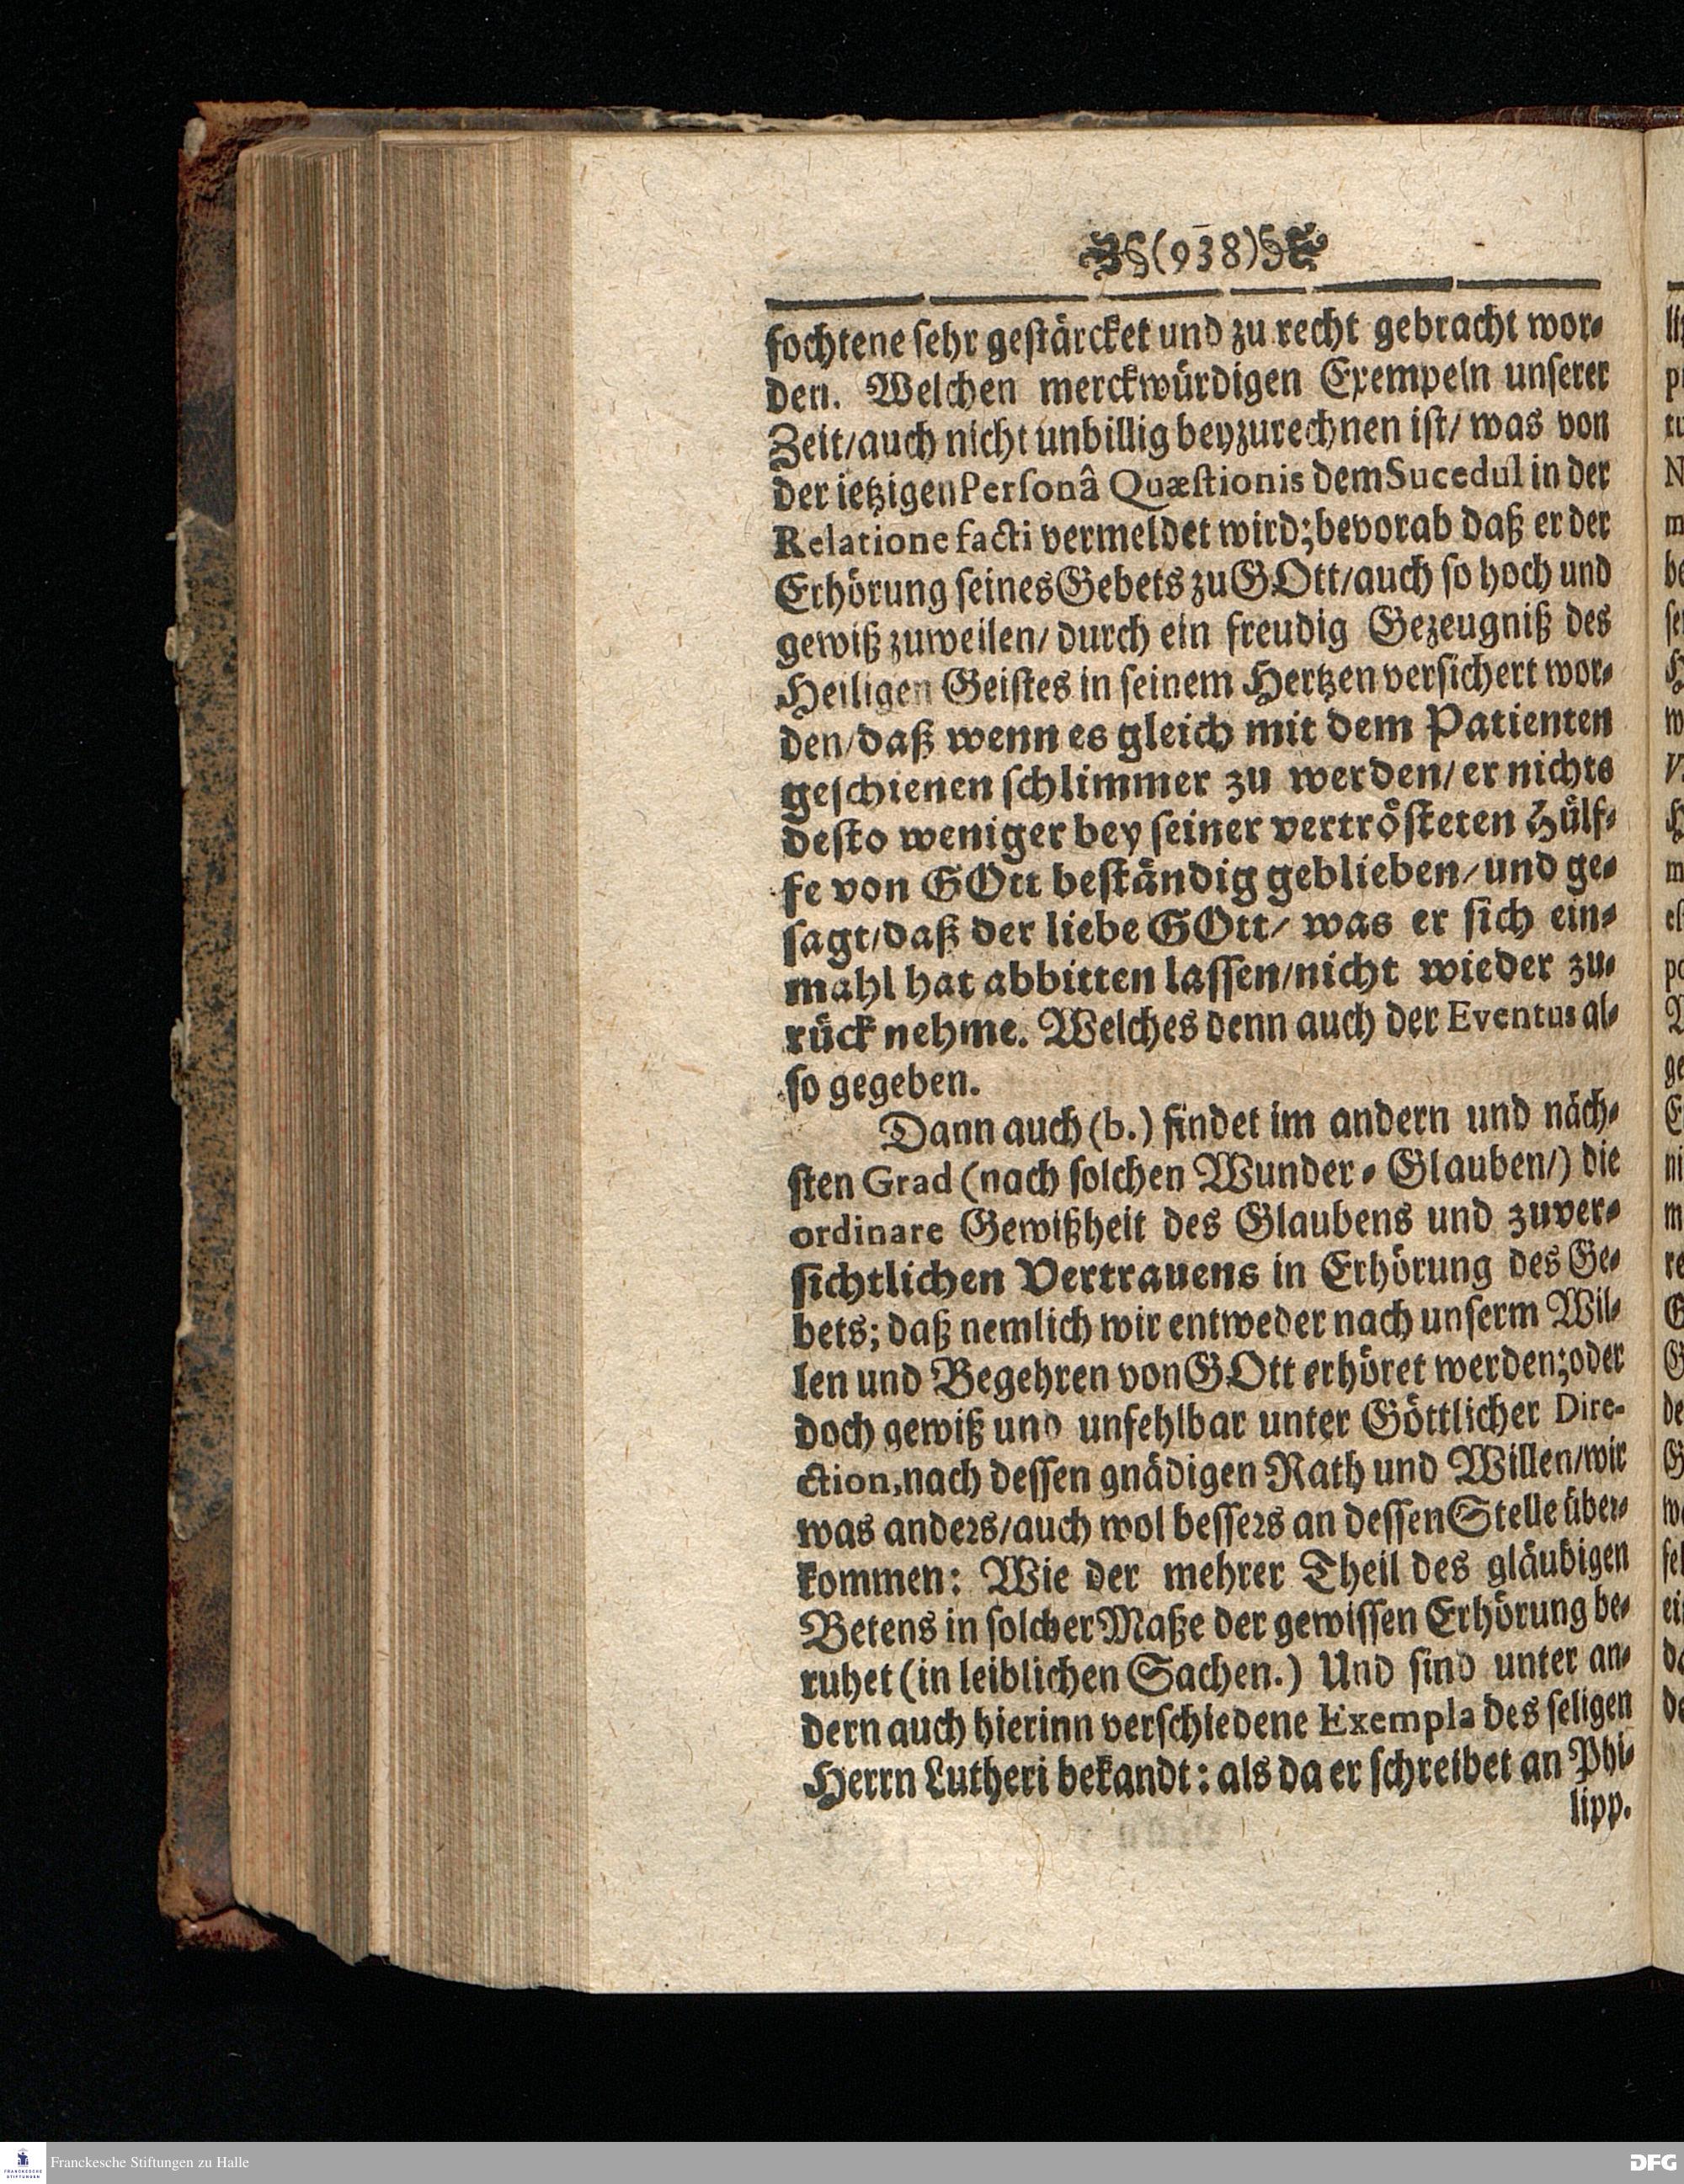 (938)
fochtene sehr gestärcket und zu recht gebracht wor-
den. Welchen merckwürdigen Exempeln unserer
Zeit/auch nicht unbillig beyzurechnen ist/ was von
der ietzigen Personâ Quæstionis dem Sucedul in der
Relatione facti vermeldet wird; bevorab daß er der
Erhörung seines Gebets zu GOtt/auch so hoch und
gewiß zuweilen/ durch ein freudig Gezeugniß des
Heiligen Geistes in seinem Hertzen versichert wor-
den/daß wenn es gleich mit dem Patienten
geschienen schlimmer zu werden/ er nichts
desto weniger bey seiner vertrösteten Hülf-
fe von GOtt beständig geblieben/und ge-
sagt/daß der liebe GOtt/ was er sich ein-
mahl hat abbitten lassen/nicht wieder zu-
rück nehme. Welches denn auch der Eventus al-
so gegeben.
Dann auch (b.) findet im andern und näch-
sten Grad (nach solchen Wunder-Glauben/) die
ordinare Gewißheit des Glaubens und zuver-
sichtlichen Vertrauens in Erhörung des Ge-
bets; daß nemlich wir entweder nach unserm Wil-
len und Begehren von GOtt erhöret werden; oder
doch gewiß und unfehlbar unter Göttlicher Dire-
ction, nach dessen gnädigen Rath und Willen/wir
was anders/auch wol bessers an dessen Stelle über-
kommen: Wie der mehrer Theil des gläubigen
Betens in solcher Maße der gewissen Erhörung be-
ruhet (in leiblichen Sachen.) Und sind unter an-
dern auch hierinn verschiedene Exempla des seligen
Herrn Lutheri bekandt: als da er schreibet an Phi-
lipp.
Franckesche Stiftungen zu Halle
DFG